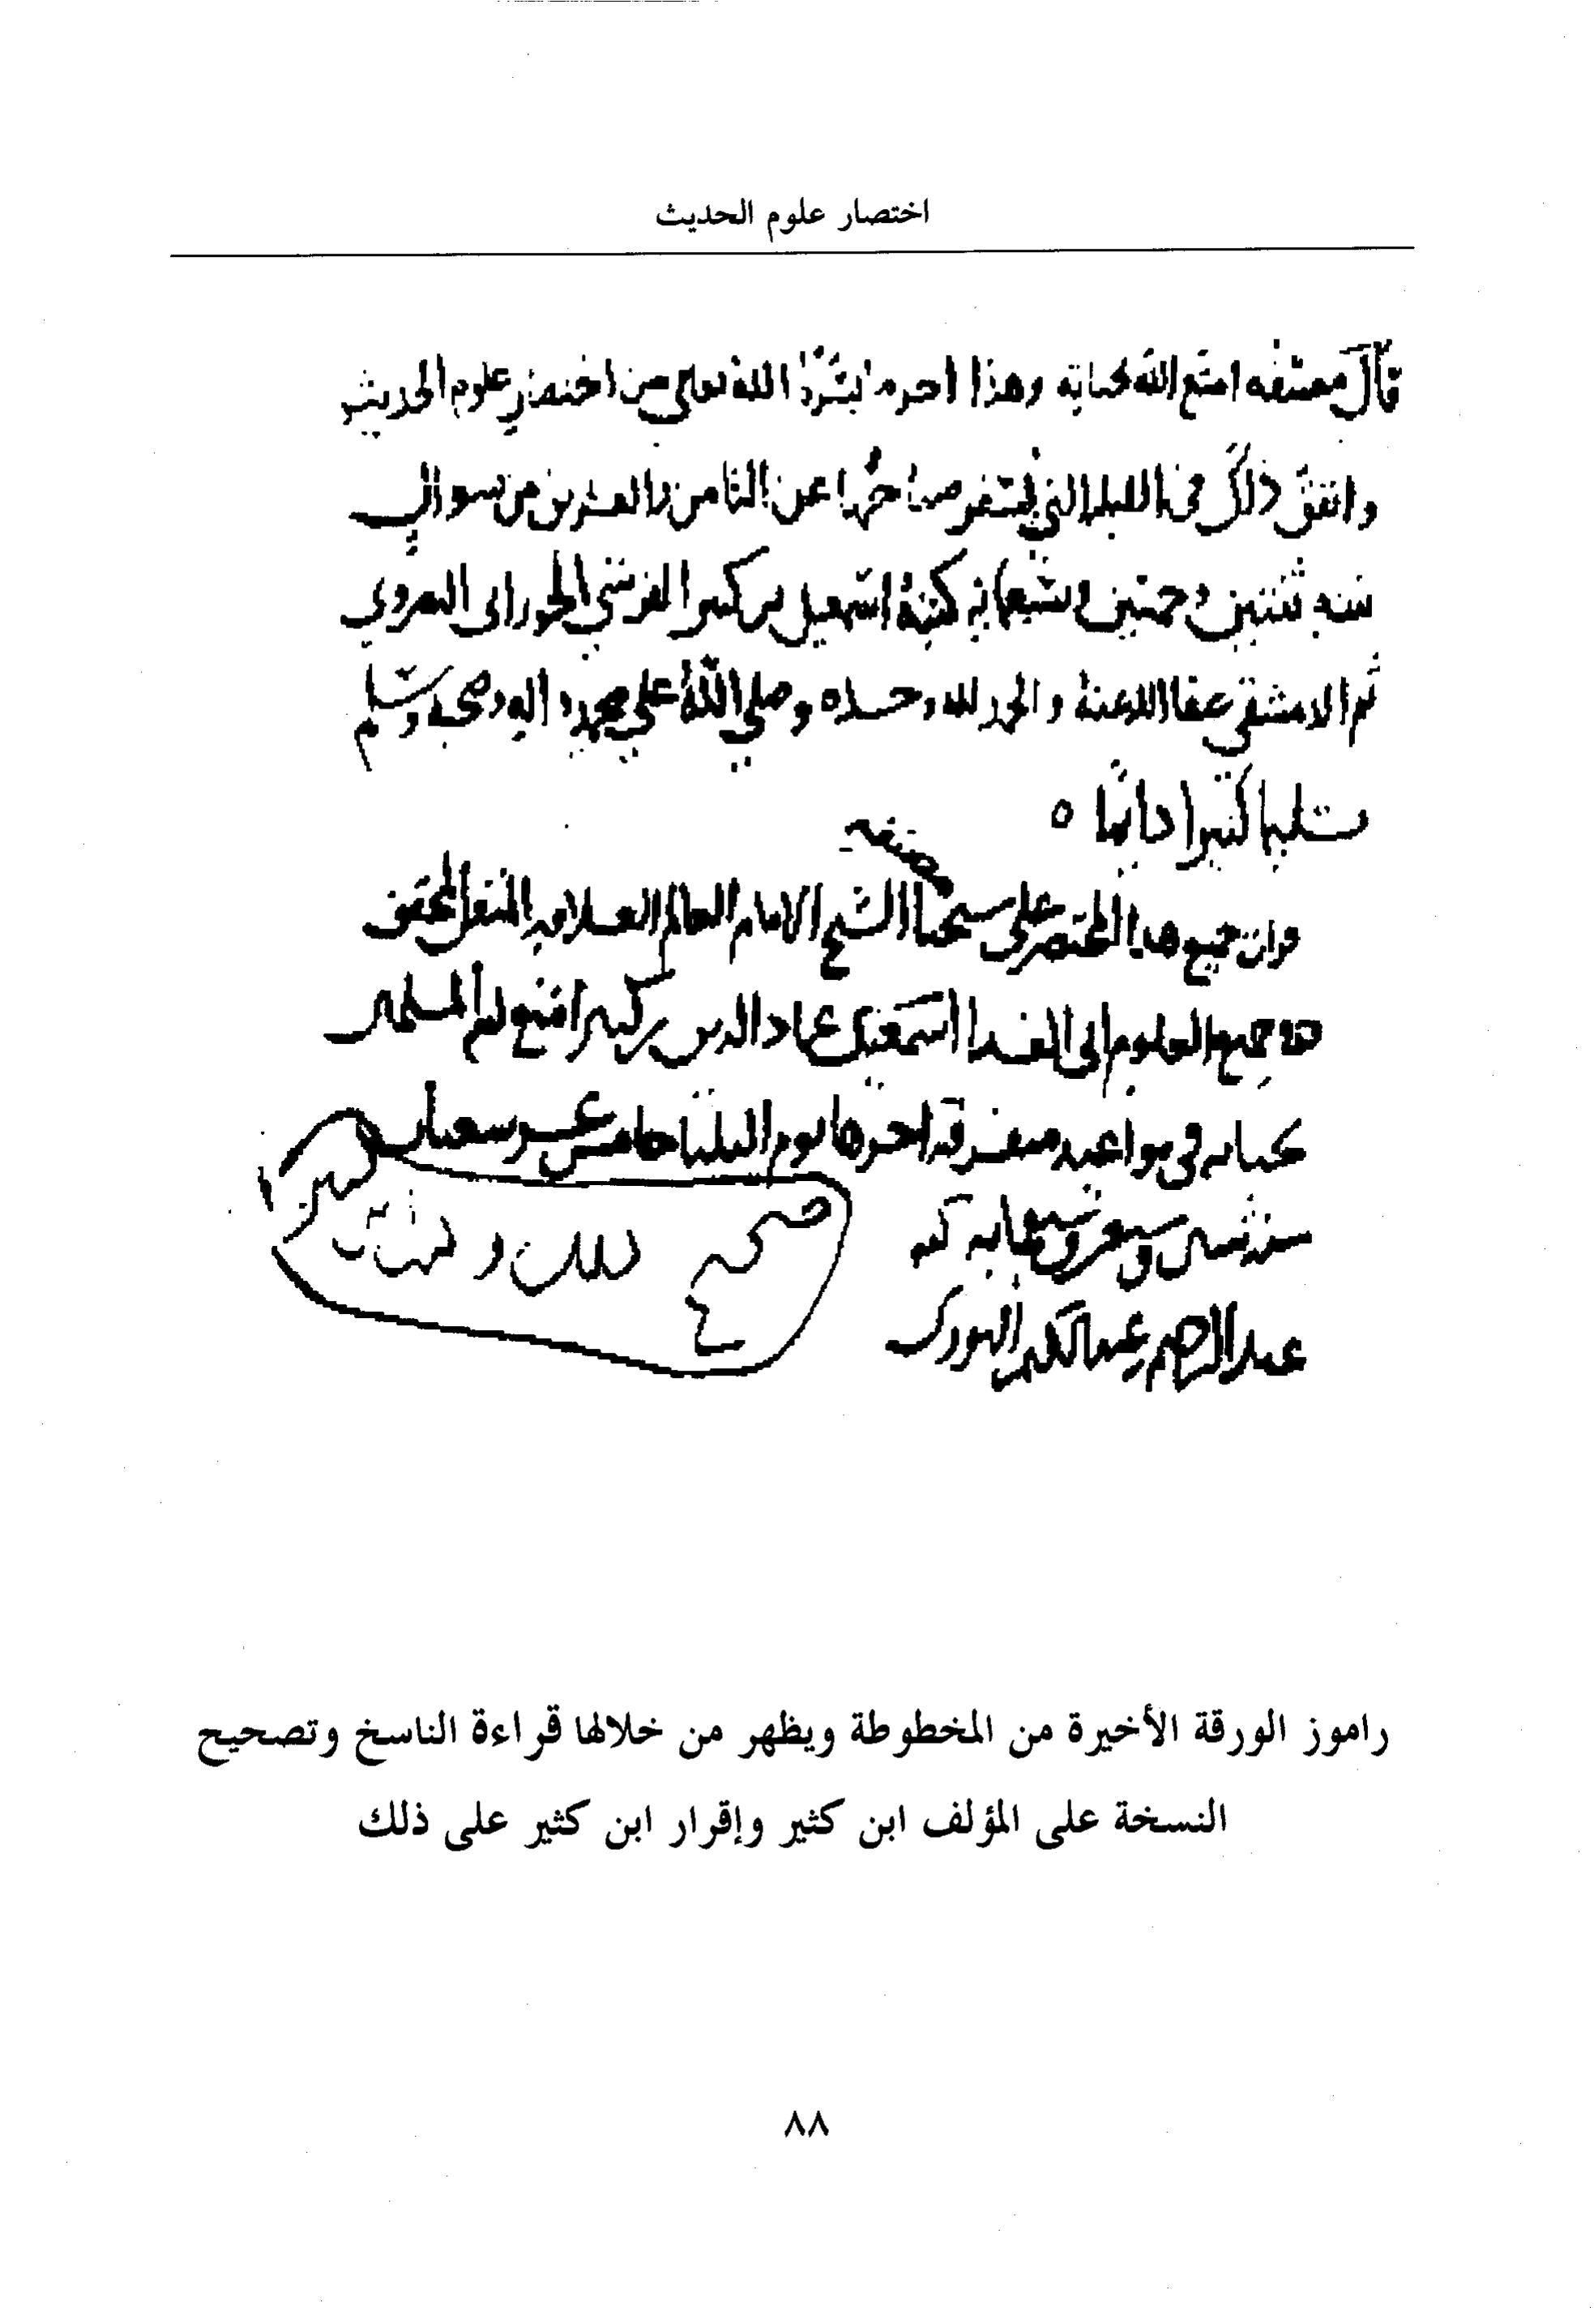 اختصار علوم الحديث
قال مصنفه امتع الله بحياته وهذا اخر ما يسره الله تعالى من اختصار علوم الحديث
واتفق ذلك في الليله التي يسفر صباحها عن الثامن والعشرين من شوال
سنه ثنتين وخمسين وسبعمايه كتبه اسمعيل بن كثير القرشي البصروي
ثم الدمشقي عفا الله عنه والحمد لله وحده وصلى الله على محمد واله وصحبه وسلم
تسليما كثيرا دايما ه
مصنفه
قرات جميع هذا المختصر على شيخنا الشيخ الامام العالم العلامه المتقن المحقق
جميع العلوم ابي الفدا اسمعيل عماد الدين بن كثير امتع الله المسلمين
بحياته في مواعيد متفرقه اخرها يوم الثلثا خامس عشر شعبان
سنه وسبعمايه كتبه
عبد الكريم
صحيح ذلك وكتب
ابن كثير
راموز الورقة الأخيرة من المخطوطة ويظهر من خلالها قراءة الناسخ وتصحيح
النسخة على المؤلف ابن كثير وإقرار ابن كثير على ذلك
٨٨